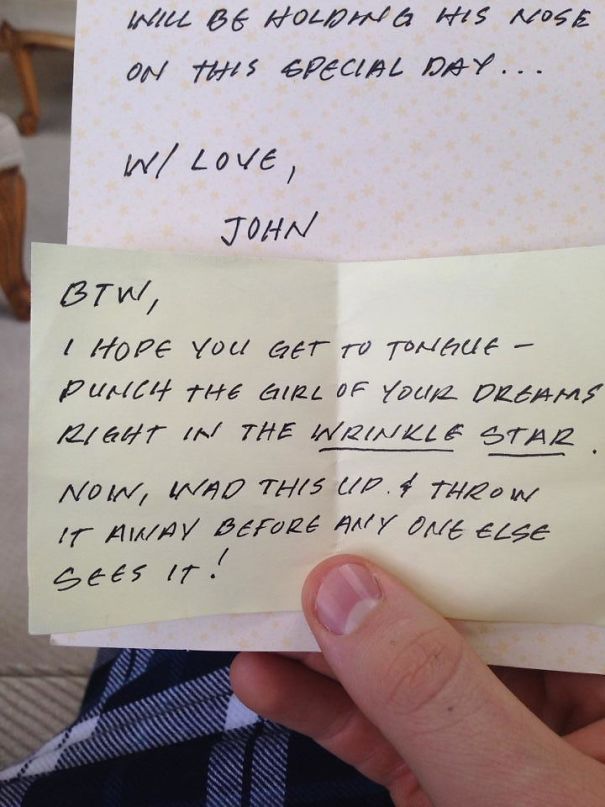 WILL BE HOLDING HIS NOSE
ON THIS SPECIAL DAY...
W/ LOVE,
JOHN
BTW,
I HOPE YOU GET TO TONGUE-
PUNCH THE GIRL OF YOUR DREAMS
RIGHT IN THE WRINKLE STAR.
NOW, WAD THIS UP & THROW
IT AWAY BEFORE ANY ONE ELSE
SEES IT!